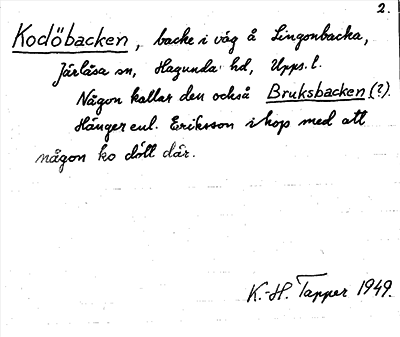 2.
Kodöbacken, backe i väg å Lingonbacka,
Järlåsa sn, Hagunda hd, Upps. l.
Någon kallar den också Bruksbacken (?).
Hänger enl. Eriksson ihop med att
någon ko dött där.
K.-H. Tapper 1949.